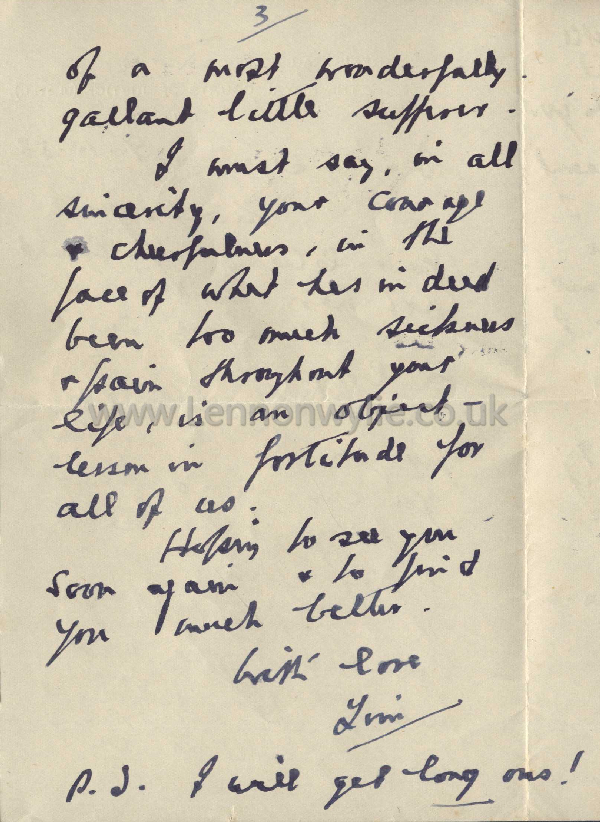 3
of a most wonderfully
gallant little sufferer.
I must say, in all
sincerity, your courage
& cheerfulness, in the
face of what has indeed
been too much sickness
& pain throughout your
www.Lennonwylie.co.uk
life, is an object-
lesson in fortitude for
all of us.
Hoping to see you
soon again & to find
you much better.
With love
P.S. I will get long ones!